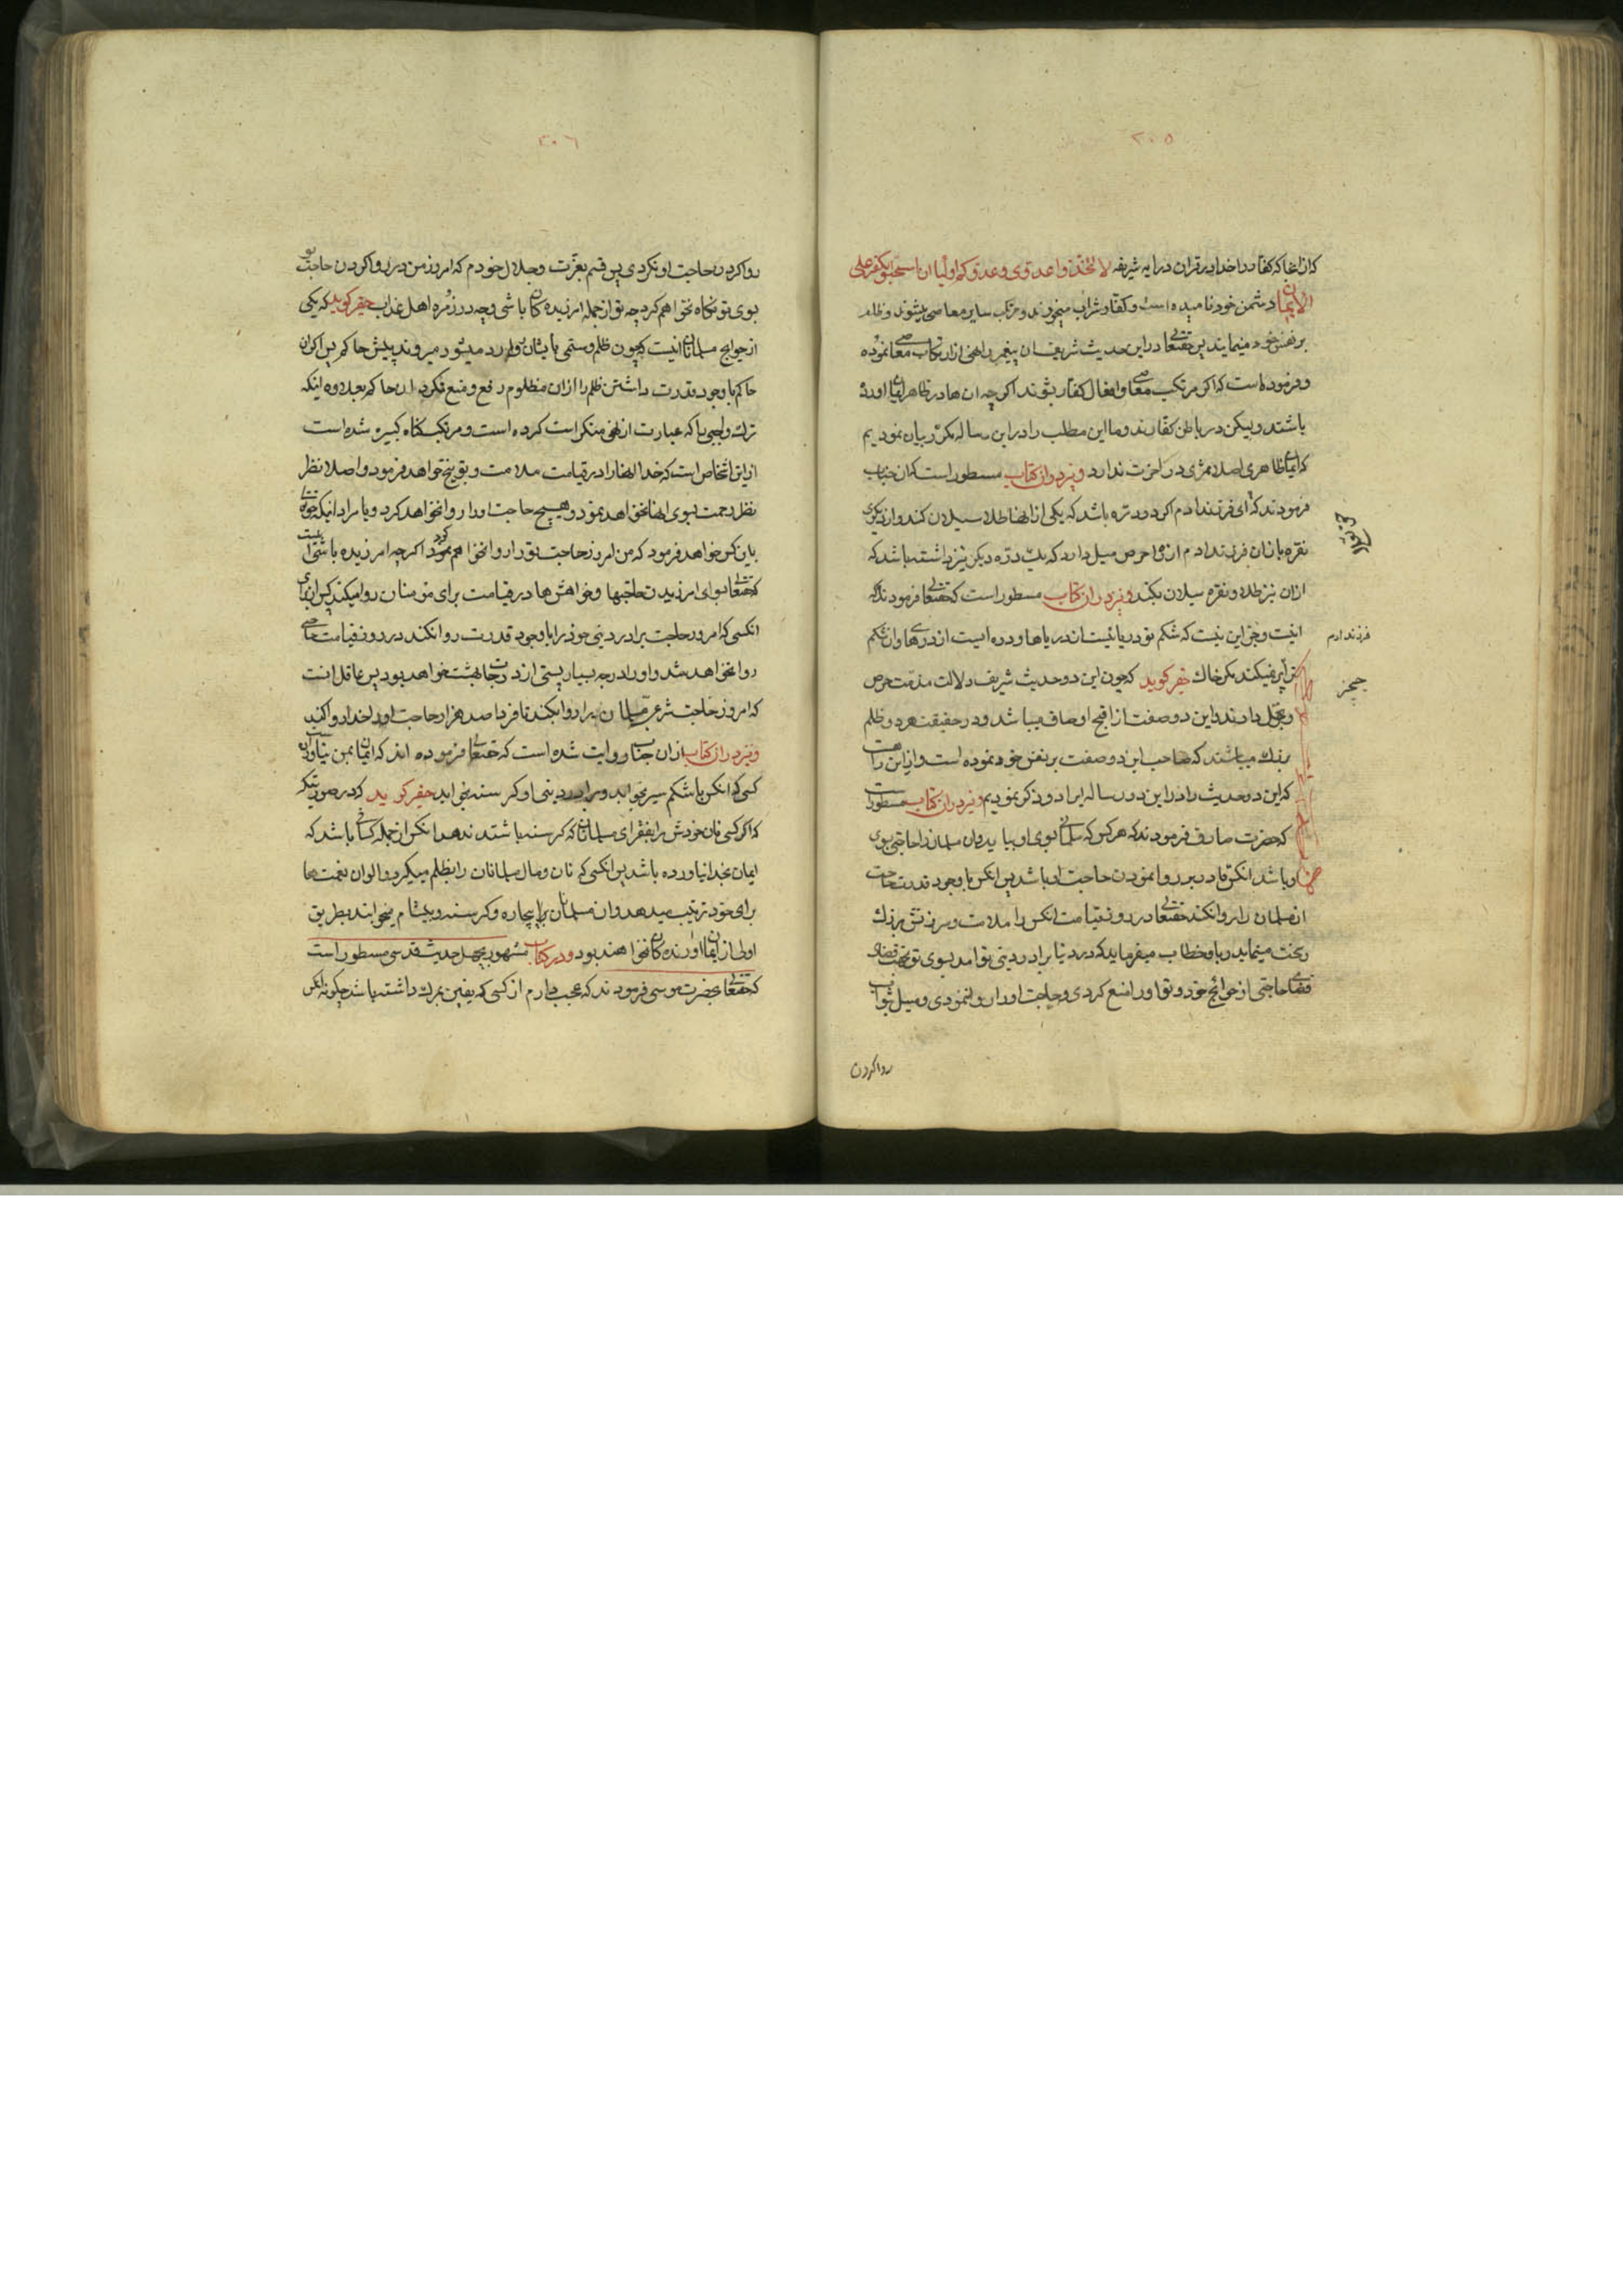 ٢٠٥
که از انجا که کفار را خدا در قران در ایه شریفه لا تتخذوا عدوی و عدوکم اولیاء ان استحبوا الکفر علی
الایمان دشمن خود نامیده است و کفار شراب میخورند و مرتکب سایر معاصی میشوند و ظلم
بر نفس خود مینمایند پس حقتعالی در این حدیث شریف ان پیغمبر را نهی از ارتکاب معاصی نموده
و فرموده است که اکر مرتکب معاصی و افعال کفار بشوند اکرچه ان ها در ظاهر ایمان اورده
باشند ولیکن در باطن کفارند و ما این مطلب را در این رساله مکرر بیان نمودیم
که ایمان ظاهری اصلا ثمری در اخرت ندارد و نیز در ان کتاب مسطور است که ان جناب
فرمودند که ای فرزند ادم اکر دو دره باشد که یکی از انها طلا سیلان کند و از دیکری
نقره باز ان فرزند ادم از حرص میل دارد که یک دره دیکر نیز داشته باشد که
از ان نیز طلا و نقره سیلان بکند و نیز در ان کتاب مسطور است که حقتعالی فرمودند که
فرزند ادم
اینست و جز این نیست که شکم تو دریائیست از دریاها و دره ایست از درهها و ان شکم
ترا پر نمیکند مکر خاک حقیر کوید که چون این دو حدیث شریف دلالت مذمت حرص
و بخل دارند و این دو صفت از اقبح اوصاف میباشد و در حقیقت هر دو ظلم
بزرک میباشند که صاحب این دو صفت بر نفس خود نموده است و از این راهست
که این دو حدیث را در این دو رساله ایراد و ذکر نمودیم و نیز در ان کتاب مسطور است
که حضرت صادق فرمودند که هر کس که مسلمانی بسوی او بیاید و ان مسلمان را حاجتی بسوی
او باشد و انکس قادر بر روا نمودن حاجت او باشد پس انکس با وجود قدرت حاجت
ان مسلمان را روا نکند حقتعالی در روز قیامت انکس را ملامت و سرزنش بزرک
و سخت مینماید و باو خطاب میفرماید که در دنیا برادر دینی تو امد بسوی تو بجهت قضای
قضای حاجتی از حوائج خود و تو او را منع کردی و حاجت او را روا ننمودی و میل بثواب
روا کردن
٢٠٦
روا کردن حاجت او نکردی پس قسم بعزت و جلال خودم که امروز من در روا کردن حاجت تو
بسوی تو نکاه نخواهم کرد چه تو از جمله امرزیده کان باشی و چه در زمره اهل عذاب حقیر کوید که یکی
از حوایج مسلمانان اینست که چون ظلم و ستمی بایشان وارد میشود میروند پیش حاکم پس اکر ان
حاکم با وجود قدرت داشتن ظلم را از ان مظلوم رفع و منع نکرد ان حاکم بعلاوه اینکه
ترک واجبی را که عبارت از نهی منکر است کرده است و مرتکب کناه کبیره شده است
از این اشخاص است که خدا انها را در قیامت ملامت و توبیخ خواهد فرمود و اصلا نظر
نظر رحمت بسوی انها نخواهد نمود و هیچ حاجت او را روا نخواهد کرد و یا مراد اینکه
بان کس خواهد فرمود که من امروز حاجت تو را روا نخواهم نمود اکرچه امرزیده باشی
که حقتعالی بعد از امرزیدن حاجتها و خواهش ها در قیامت برای مؤمنان روا میکند پس از برای
انکسی که امروز حاجت برادر دینی خود را با وجود قدرت روا نکند در روز قیامت حاجتی
روا نخواهد شد و او را درجه بسیار پستی از درجات بهشت خواهد بود پس عاقل انست
که امروز حاجت شرعی مسلمان را روا بکند تا فردا صد هزار حاجت او را خدا روا کند
و نیز در ان کتاب از ان جناب روایت شده است که حقتعالی فرموده اند که ایمان بمن نیاورده است
کسی که انکس با شکم سیر بخوابد و برادر دینی او کرسنه بخوابد حقیر کوید که در صورتیکه
که اکر کسی نان خودش را بفقرای مسلمانان که کرسنه باشند ندهد انکس از جمله کسانی باشد که
ایمان بخدا نیاورده باشد پس انکسی که نان و مال مسلمانان را بظلم میکیرد و الوان نعمتها
برای خود ترتیب میدهد و ان مسلمانان بیچاره و کرسنه و بیشام میخوابند بطریق
اولی از ایمان اورنده کان نخواهند بود و در کتاب مشهور بچهل حدیث قدسی مسطور است
که حقتعالی بحضرت موسی فرمودند که عجب دارم از کسی که یقین بمرک داشته باشد چکونه انکس